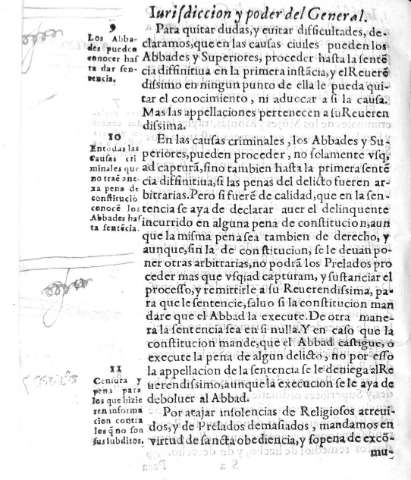 Iurisdiccion y poder del General.
9
Los Abba-
des pueden
conocer has
ta dar sen-
tencia.
Para quitar dudas, y euitar difficultades, de-
claramos, que en las causas ciuiles pueden los
Abbades y Superiores, proceder hasta la sentẽ
cia diffinitiua en la primera instãcia, y el Reuerẽ
dissimo en ningun punto de ella le pueda qui-
tar el conocimiento, ni aduocar a si la causa.
Mas las appellaciones pertenecen a su Reueren
dissima.
10
En todas las
causas cri
minales que
no traẽ ane-
xa pena de
constitució
conocẽ los
Abbades has
ta sentẽcia.
En las causas criminales, los Abbades y Su-
periores, pueden proceder, no solamente vsq̃;
ad capturã, sino tambien hasta la primera sentẽ
cia diffinitiua, si las penas del delicto fueren ar-
bitrarias. Pero si fuerẽ de calidad, que en la sen-
tencia se aya de declarar auer el delinquente
incurrido en alguna pena de constitucion, aun
que la misma pena sea tambien de derecho, y
aunque, sin la de constitucion, se le deuan po-
ner otras arbitrarias, no podrã los Prelados pro
ceder mas que vsq̃; ad capturam, y sustanciar el
processo, y remitirle a su Reuerendissima, pa-
ra que le sentencie, saluo si la constitucion man
dare que el Abbad la execute. De otra mane-
ra la sentencia sea en si nulla. Y en caso que la
constitucion mande, que el Abbad castigue, o
execute la pena de algun delicto, no por esso
la appellacion de la sentencia se le deniega al Re
uerendissimo, aunque la execucion se le aya de
deboluer al Abbad.
11
Censura y
pena para
los que hizie
ren informa
cion contra
los q̃ no son
sus subditos.
Por atajar insolencias de Religiosos atreui-
dos, y de Prelados demasiados, mandamos en
virtud de sancta obediencia, y so pena de excõ-
mu-